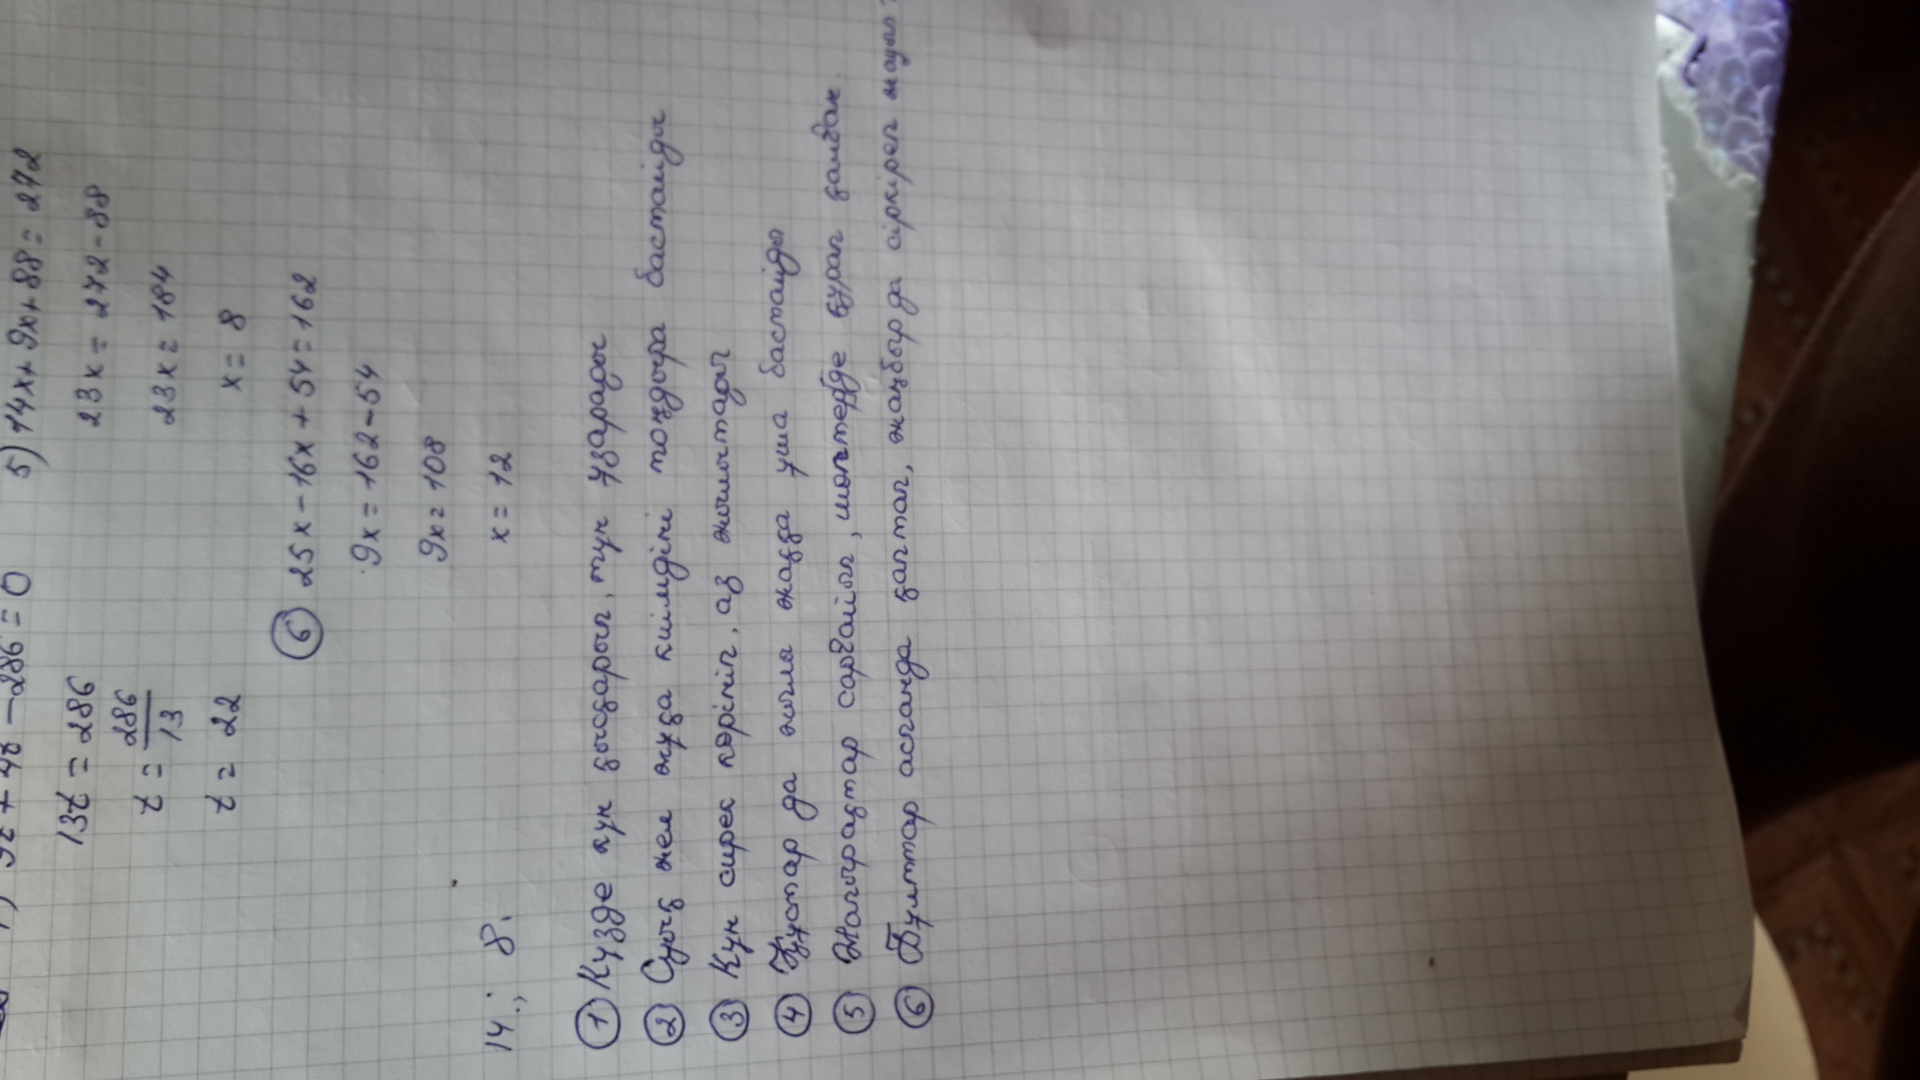 9t + 4t - 286 = 0
13t = 286
t = 286/13
t = 22
5) 14x + 9x + 88 = 272
23x = 272 - 88
23x = 184
x = 8
6 25x - 16x + 54 = 162
9x = 162 - 54
9x = 108
x = 12
14.; 8.
1 Күзде күн қысқарып, түн ұзарады
2 Суық жел жұқа киімдіні тоңдыра бастайды
3 Күн сирек көрініп, аз жылытады
4 Құстар да жылы жаққа ұша бастайды
5 Жапырақтар сарғайып, шөптерде қурап қалған
6 Бұлттар аспанда қаптап, жаңбыр да сіркіреп